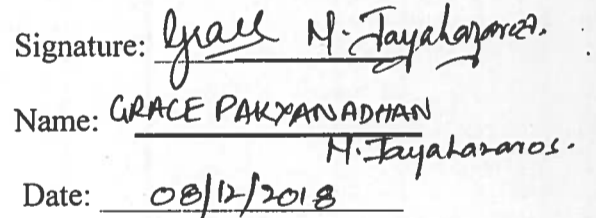 Signature: Grace M. Jayahazaros.
Name: GRACE PAKYANADHAN
M. Jayahazaros.
Date: 08/12/2018